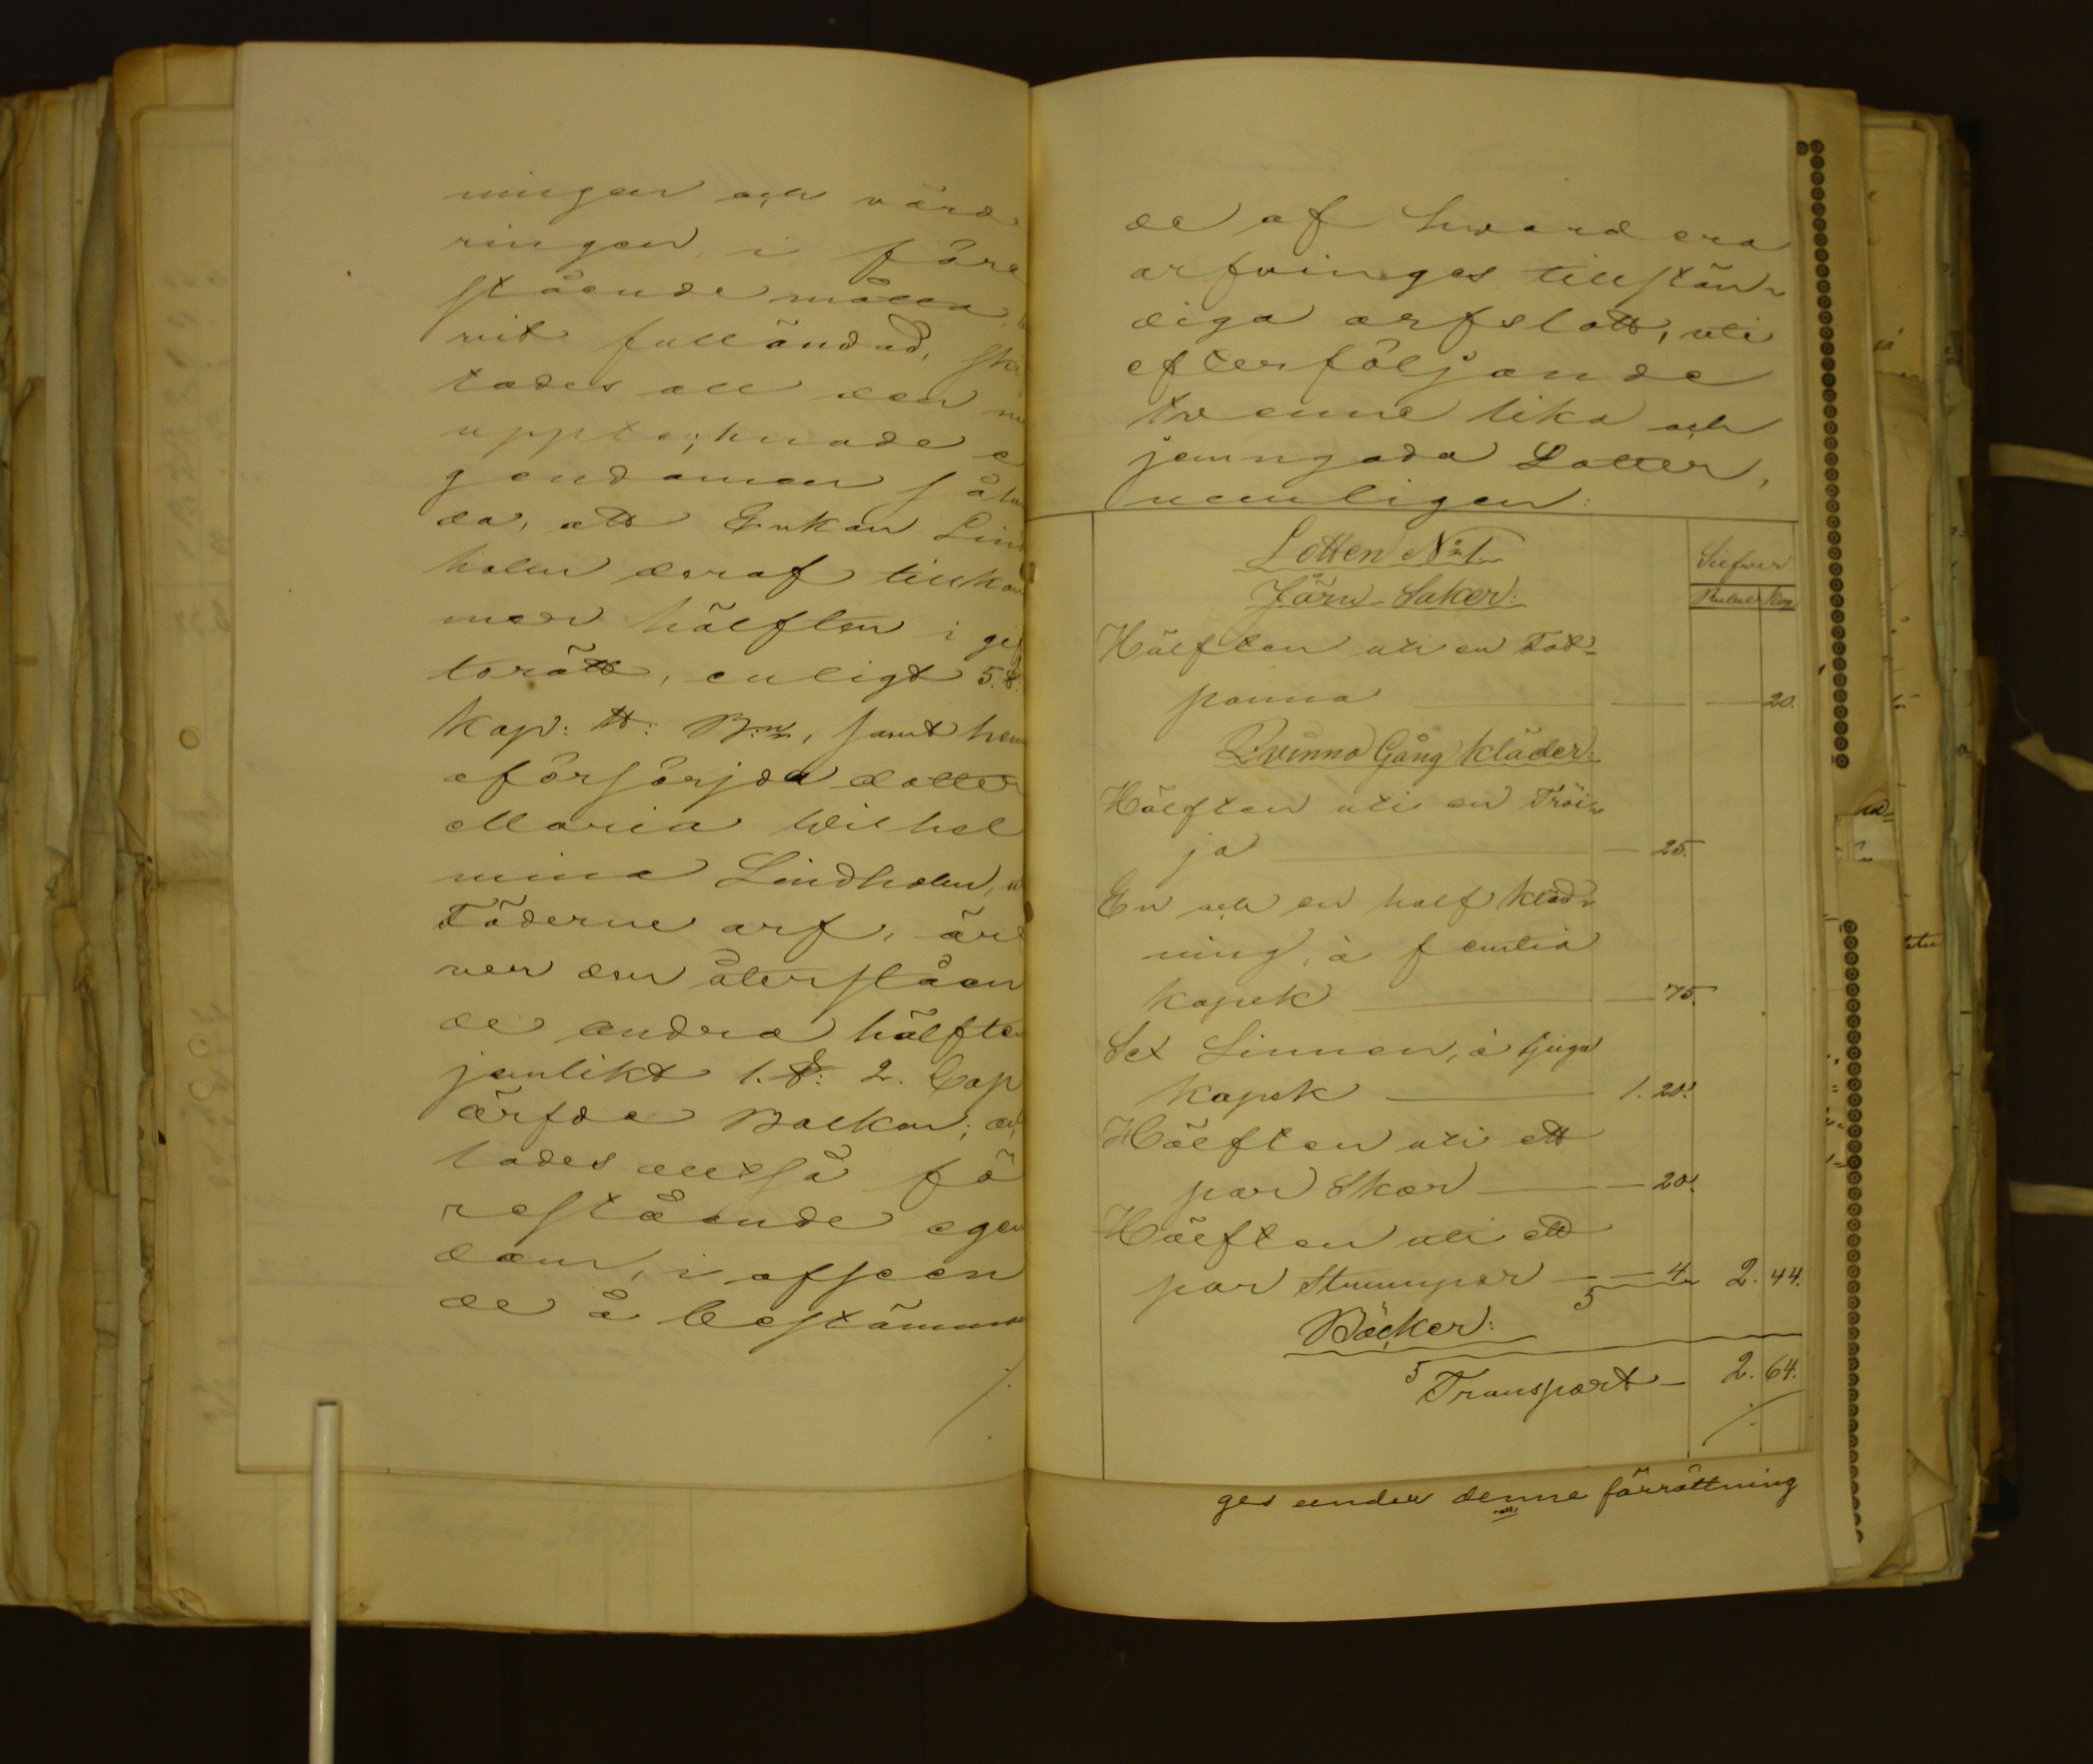 ningen och värde
ringen, i före
stående måtto,
vit fulländad, ski
tades all den nu
upptecknade e
gendomen sålun
da, att Enkan Lind
holm deraf tillkom
mer hälften i gif
torätt, enligt 5. §.
Kap: Gt: B:n, samt hen
oförsörjda dotter
Maria Wilhel
mina Lindholm, i
Fäderne arf, är
ver den återståen
de andra hälften
jemlikt 1. §: 2. Cap
ärfda Balken;
tades alltså fö
restående egen
dom, i afseen
de å bestämman
de af hwardera
arfvinges tillstän-
diga arfslott, uti
efterföljande
twenne lika och
jemngoda Lotter,
nemligen:
Lotten N:o 1.
Silfver
Rubel Kop
Järn-Saker:
Hälften uti en Fat-
panna 20.
Qvinno Gång Kläder:
Hälften uti en Tröi-
ja 25.
En och en half Kläd-
ning, à femtio
kopek 75.
Sex Linnen, à tjugo
kopek 1. 20.
Hälften uti ett
par Skor 20.
Hälften uti ett
par Strumpor 4 2. 44.
Böcker:
Transport 2. 64.
ges under denne förrättning